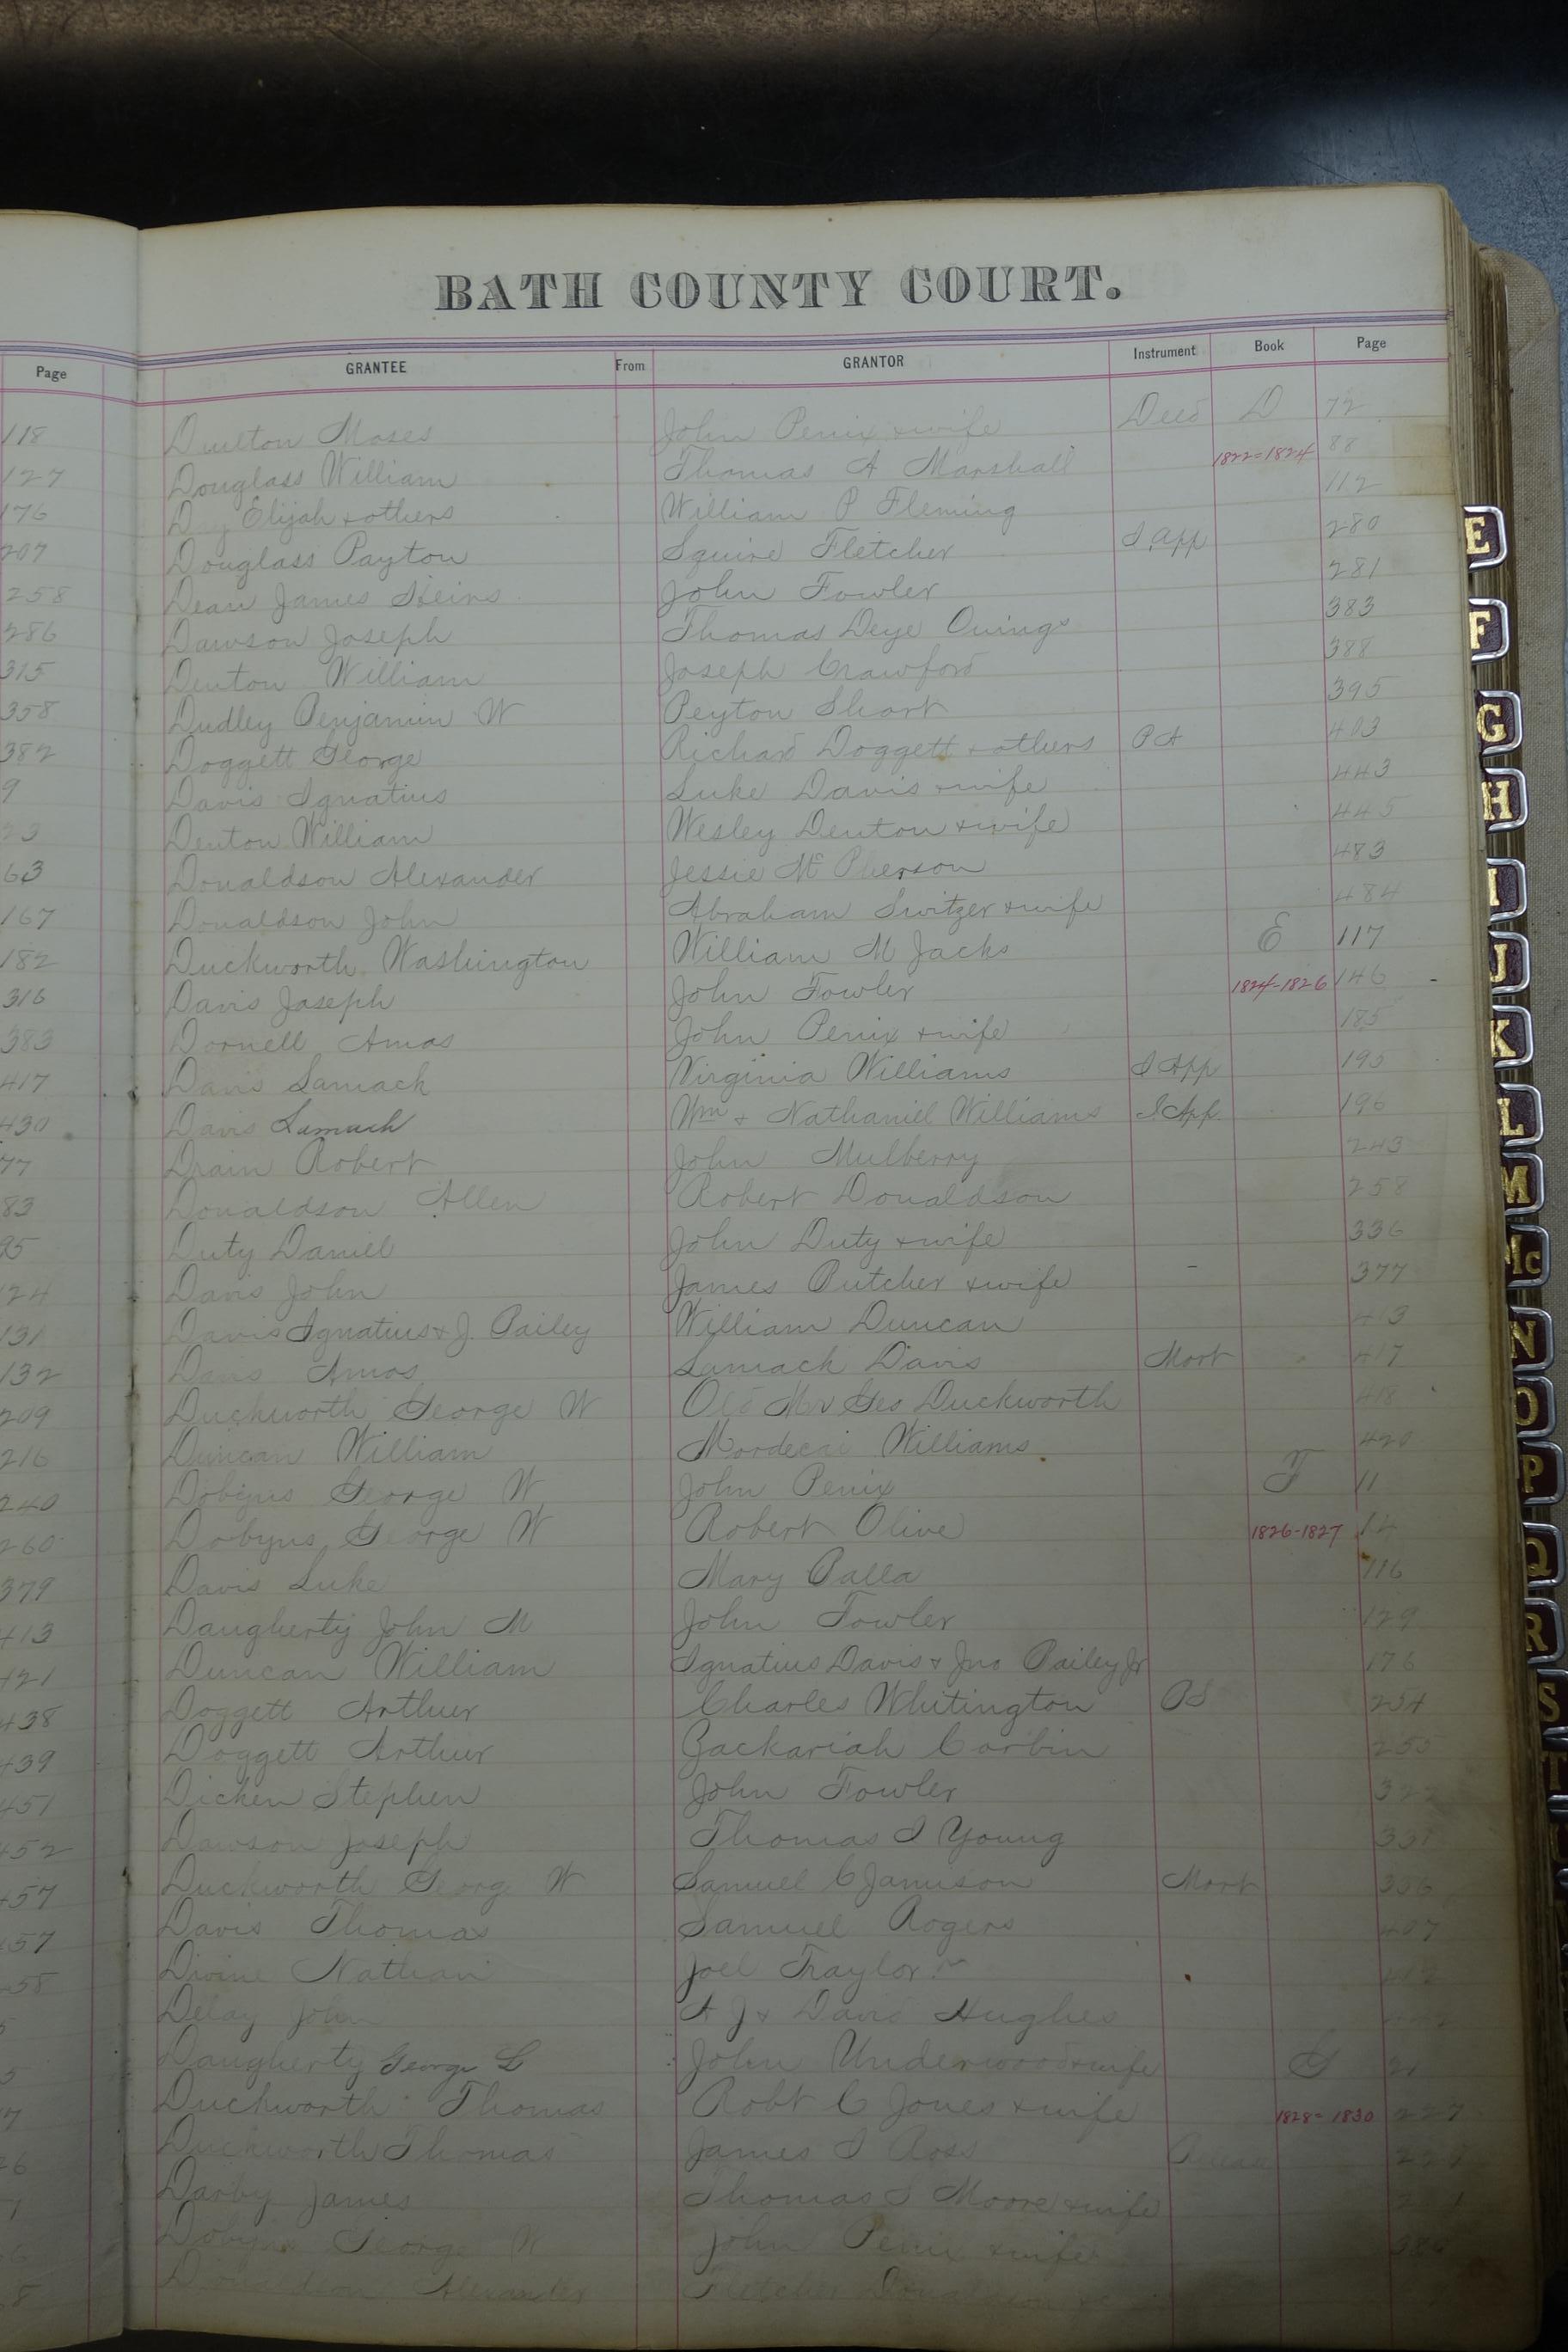 BATH COUNTY COURT.
Page GRANTEE From GRANTOR Instrument Book Page
118 Moses John Penix & wife Deed D 72
127 Douglass William Thomas A Marshall 1822=1824 88
176 Elijah & others William P Fleming 112
207 Douglass Payton Squire Fletcher S. App 280
258 Dean James John Fowler 281
286 Dawson Joseph Thomas Deye Owings 383
315 Denton William Joseph Crawford 388
358 Dudley Benjamin W Peyton Short 395
382 Doggett George Richard Doggett & others P A 403
9 Davis Ignatius Luke Davis & wife 443
23 Denton William Wesley Denton & wife 445
63 Donaldson Alexander Jessie Mc Pherson 483
167 Donaldson John Abraham Switzer & wife 484
182 Duckworth Washington William M Jacks E 117
316 Davis Joseph John Fowler 1824-1826 146
383 Dornell Amos John Penix & wife 185
417 Davis Lamack Virginia Williams S App 195
430 Davis Lamach Wm & Nathaniel Williams S. App. 196
77 Drain Robert John Mulberry 243
83 Donaldson Allen Robert Donaldson 258
95 Duty Daniel John Duty & wife 336
124 Davis John James Butcher & wife 377
131 Davis Ignatius & J. Bailey William Duncan 413
132 Davis Amos Lamack Davis Mort 417
209 Duckworth George W Geo Duckworth 418
216 Duncan William Mordecai Williams 420
240 Dobyns George W John Penix F 11
260 Dobyns George W Robert Olive 1826-1827 14
379 Davis Luke Mary Balla 116
413 Daugherty John M John Fowler 129
421 Duncan William Ignatius Davis & Jno Bailey Jr 176
438 Doggett Arthur Charles Whitington BS 254
439 Doggett Arthur Zackariah Corbin 255
451 Dicken Stephen John Fowler
452 Dawson Joseph Thomas I Young
457 Duckworth George W Samuel C Jamison Mort 336
457 Davis Thomas Samuel Rogers 407
58 Divine Nathan Joel Traylor
Delay John A J & David Hughes
Daugherty George L John Underwood & wife G 21
Duckworth Thomas Robt C Jones & wife 1828=1830 227
Duckworth Thomas James I Ross
Darby James Thomas S Moore & wife
Dobyns George W John Penix & wife
Alexander Fletcher
E
F
G
H
I
J
K
L
M
Mc
N
O
P
Q
R
S
T
U